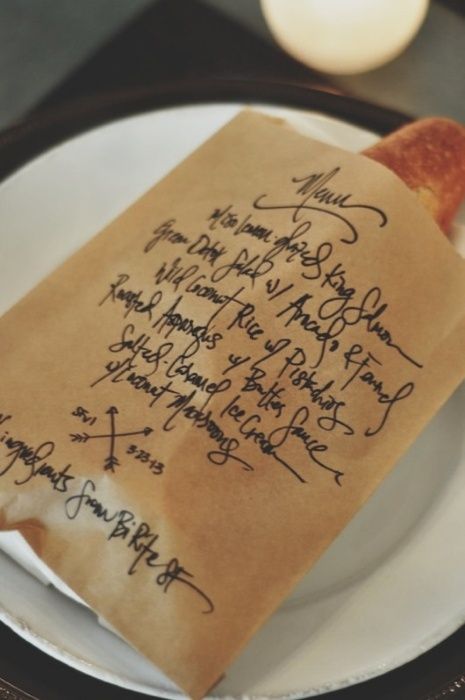 Menu
Miso lemon glazed King Salmon
Green Salad w/ Avocado & Fennel
Wild Coconut Rice w/ Pistachios
Roasted Asparagus w/ Butter Sauce
Salted Caramel Ice Cream
w/ Coconut Macaroons
3.23.13
Ingredients from BiRite SF